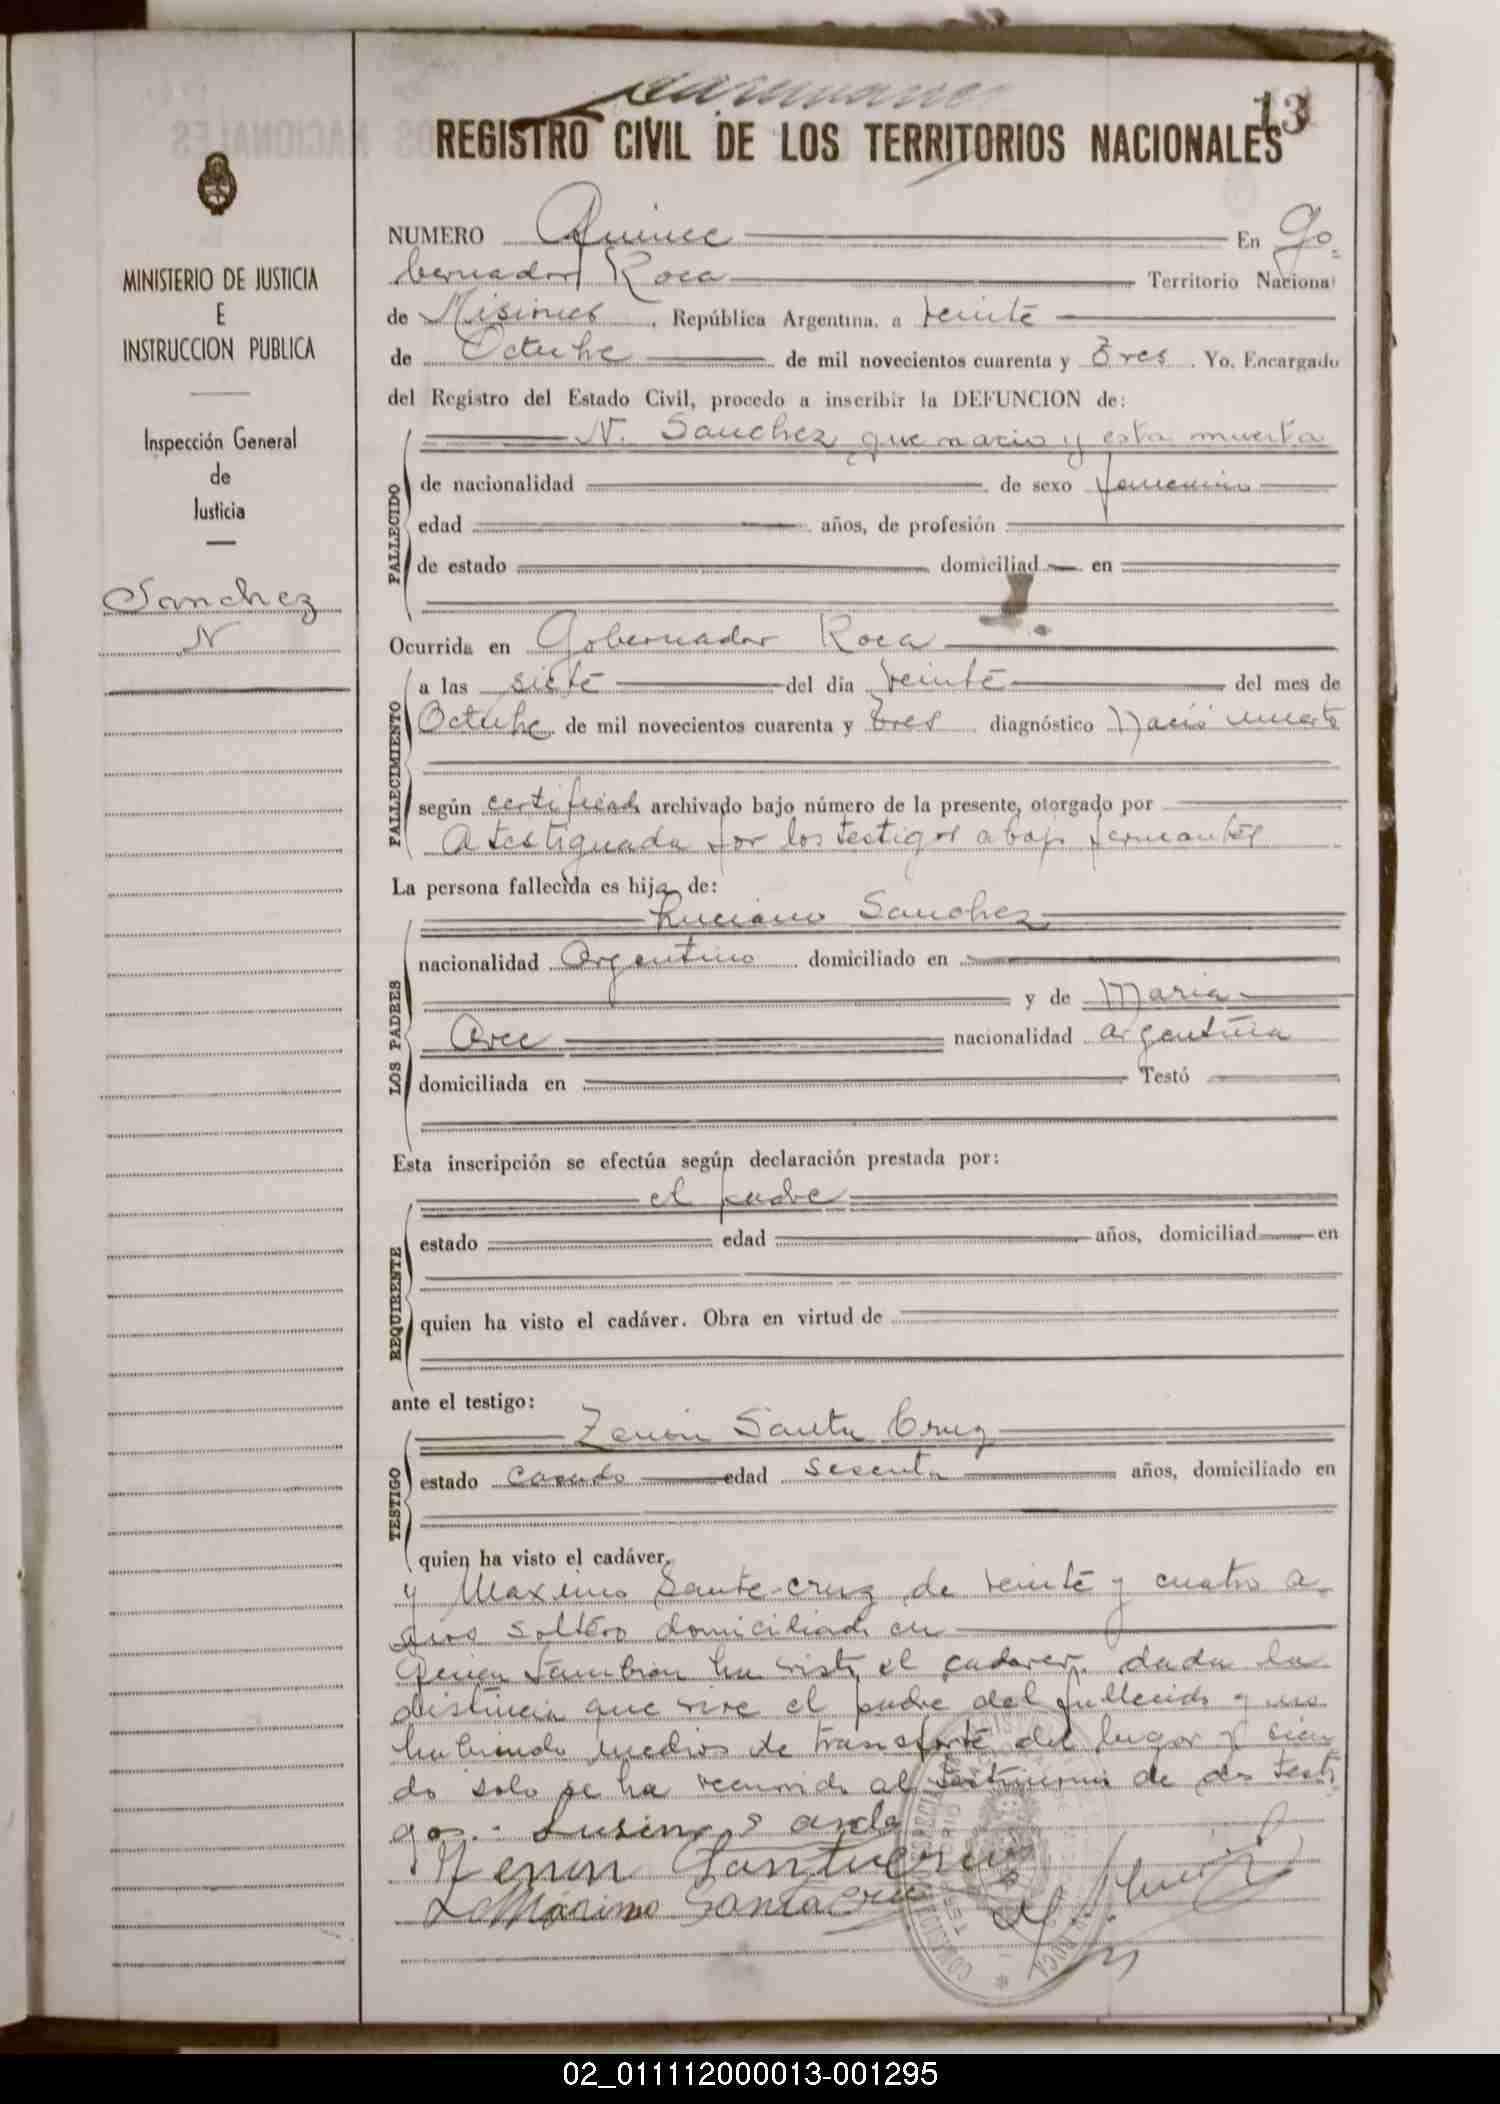 13
REGISTRO CIVIL DE LOS TERRITORIOS NACIONALES
MINISTERIO DE JUSTICIA
E
INSTRUCCION PUBLICA
Inspección General
de
Justicia
Sanchez
N
NUMERO Quince En Go-
bernador Roca Territorio Naciona
de Misiones, República Argentina, a veinte
de Octubre de mil novecientos cuarenta y Tres. Yo, Encargado
del Registro del Estado Civil, procedo a inscribir la DEFUNCION de:
FALLECIDO
N. Sanchez que nacio y esta muerta
de nacionalidad de sexo femenino
edad años, de profesión
de estado domiciliad en
Ocurrida en Gobernador Roca
FALLECIMIENTO
a las siete del día veinte del mes de
Octubre de mil novecientos cuarenta y Tres diagnóstico Nació muerta
según certificado archivado bajo número de la presente, otorgado por
Atestiguada por los testigos abajo firmantes
La persona fallecida es hija de:
LOS PADRES
Luciano Sanchez
nacionalidad Argentino domiciliado en
y de Maria
Arce nacionalidad argentina
domiciliada en Testó
Esta inscripción se efectúa según declaración prestada por:
REQUIRENTE
el padre
estado edad años, domiciliad en
quien ha visto el cadáver. Obra en virtud de
ante el testigo:
TESTIGO
Zenón Santa Cruz
estado casado edad sesenta años, domiciliado en
quien ha visto el cadáver.
y Maximo Santa-cruz de veinte y cuatro a-
ños soltero domiciliado en
quien tambien ha visto el cadaver, dada la
distancia que vive el padre del fallecido y no
habiendo medios de transporte del lugar y sien
do solo se ha recurrido al testimonio de dos testi
gos.-
Zenon Santa Cruz
Maximo Santa Cruz
02_011112000013-001295